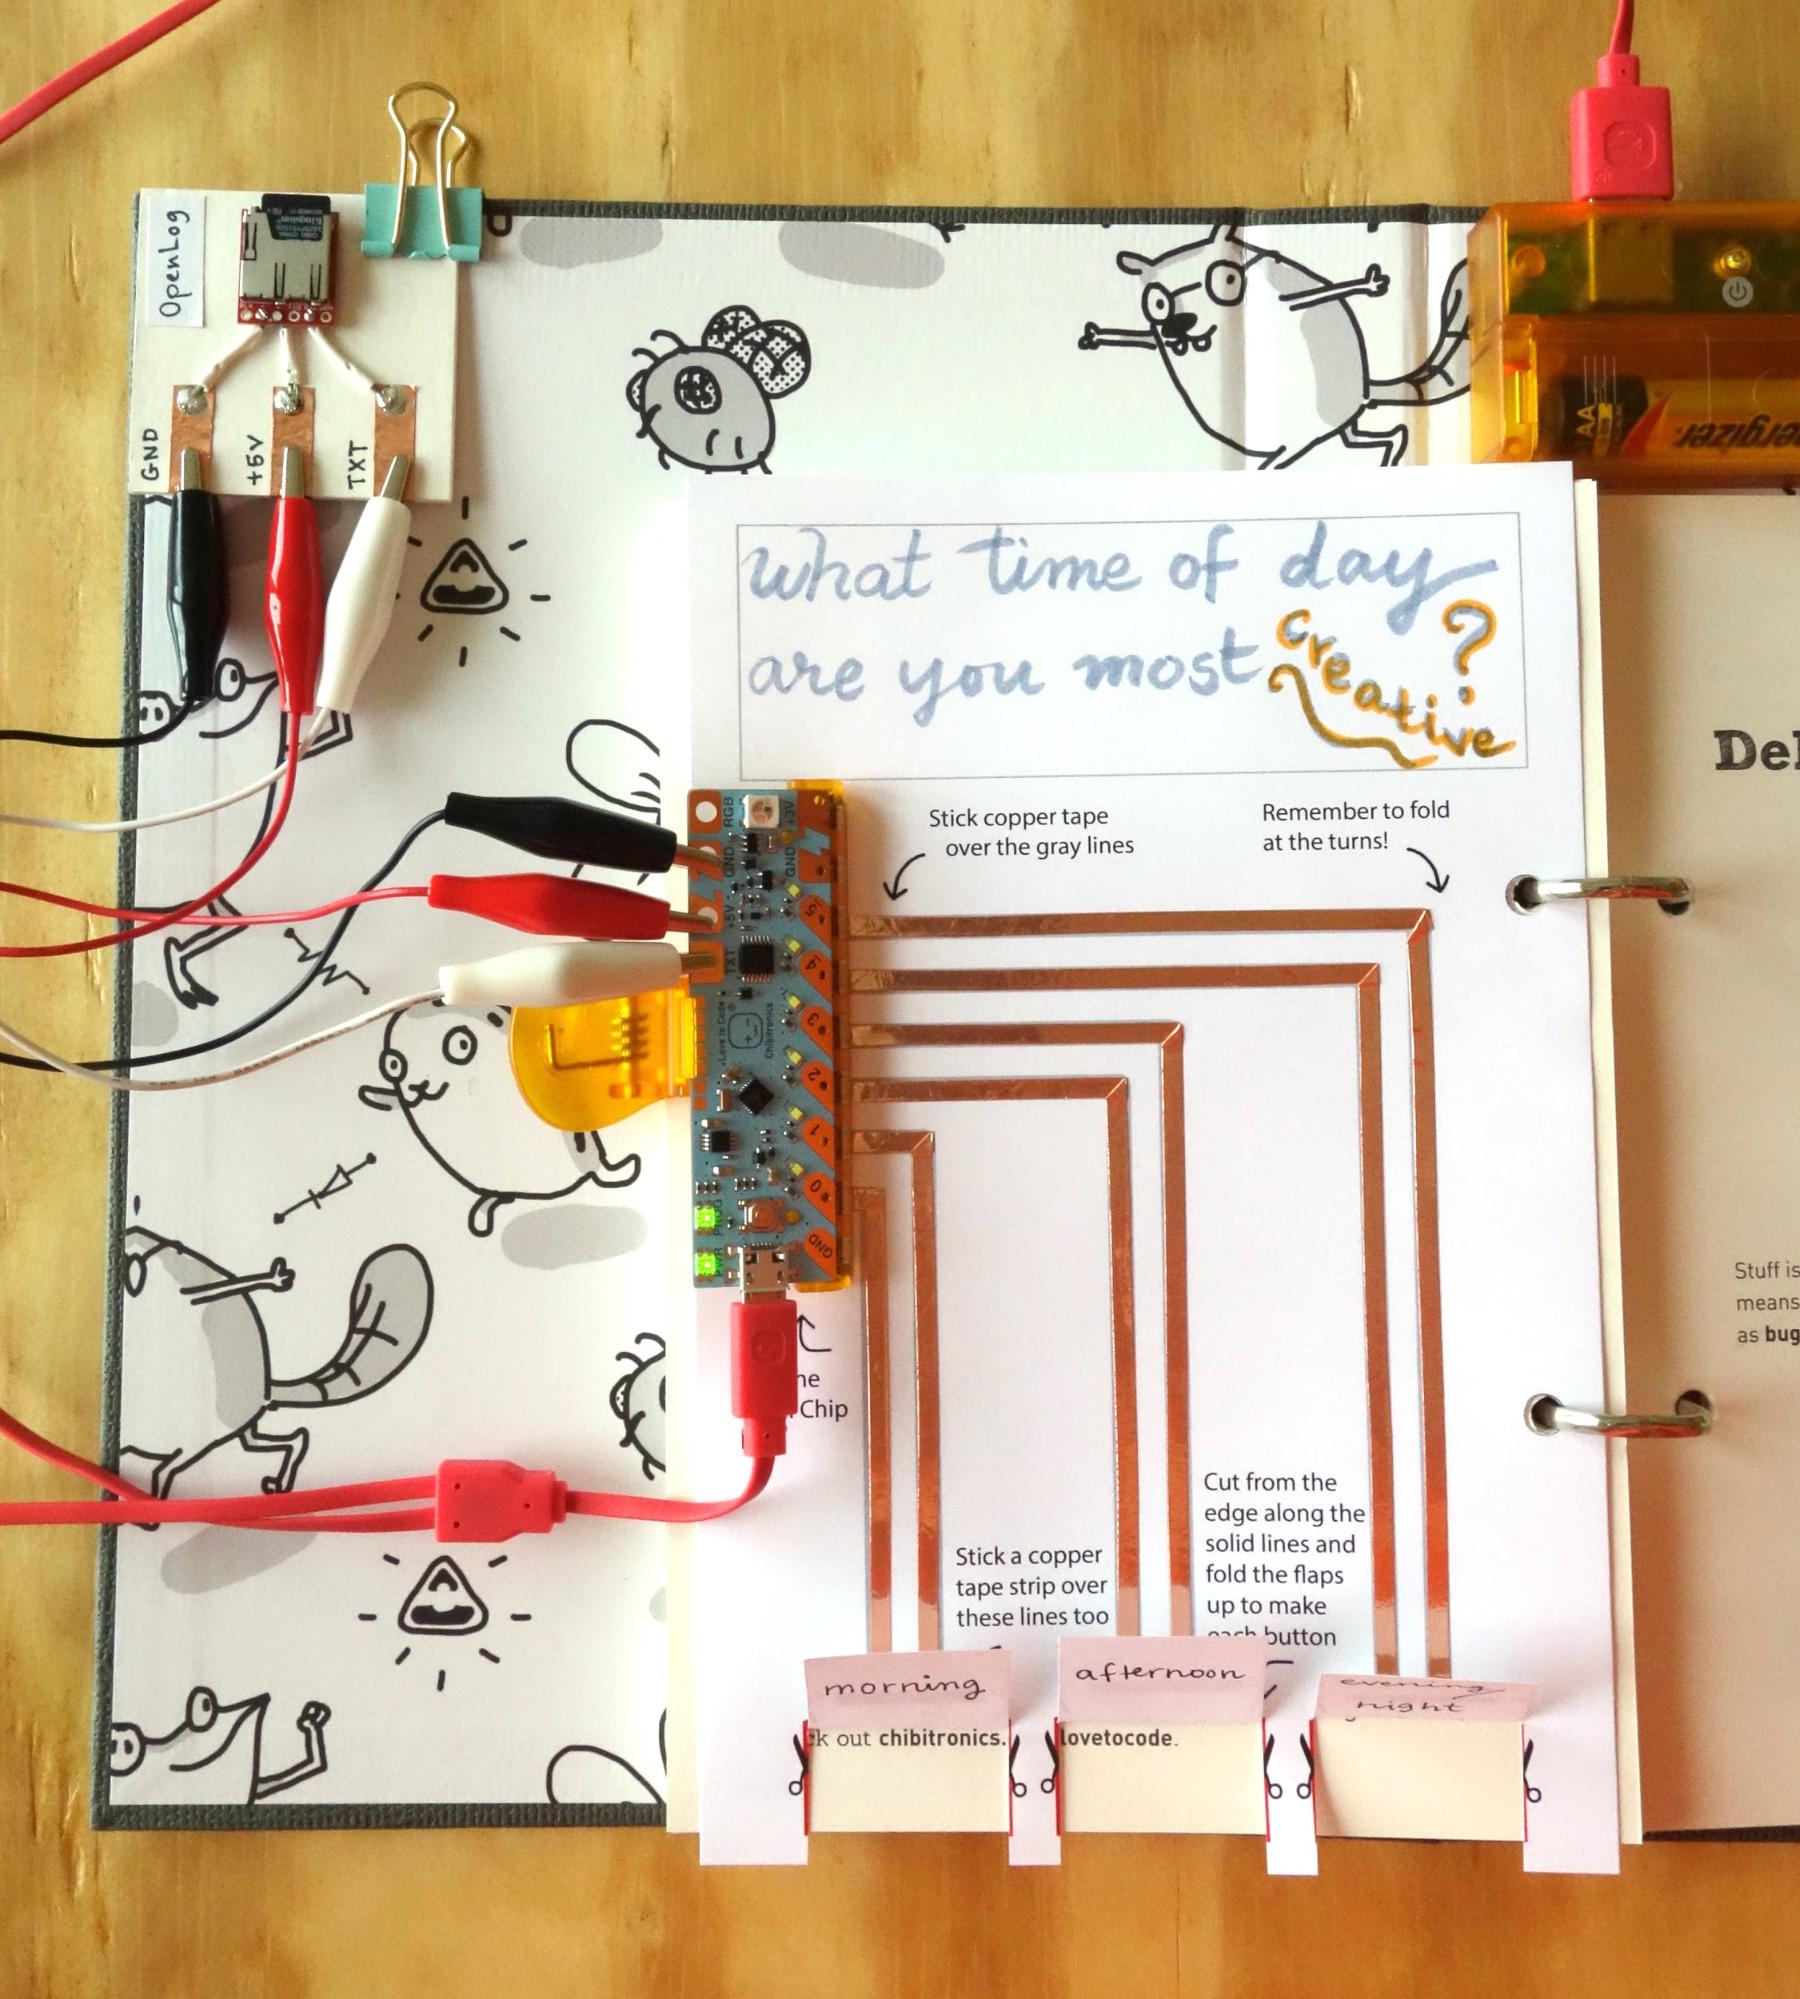 OpenLog
Kingston
GND
+5V
TXT
AA
what time of day
are you most creative?
Stick copper tape
over the gray lines
Remember to fold
at the turns!
RGB
+3V
GND
GND
5V
TXT
Love to Code
Chibitronics
5
4
3
2
1
0
GND
PROG
PWR
Chip
Stick a copper
tape strip over
these lines too
Cut from the
edge along the
solid lines and
fold the flaps
up to make
each button
morning
afternoon
evening
night
ck out chibitronics.
lovetocode.
Stuff is
means
as bug